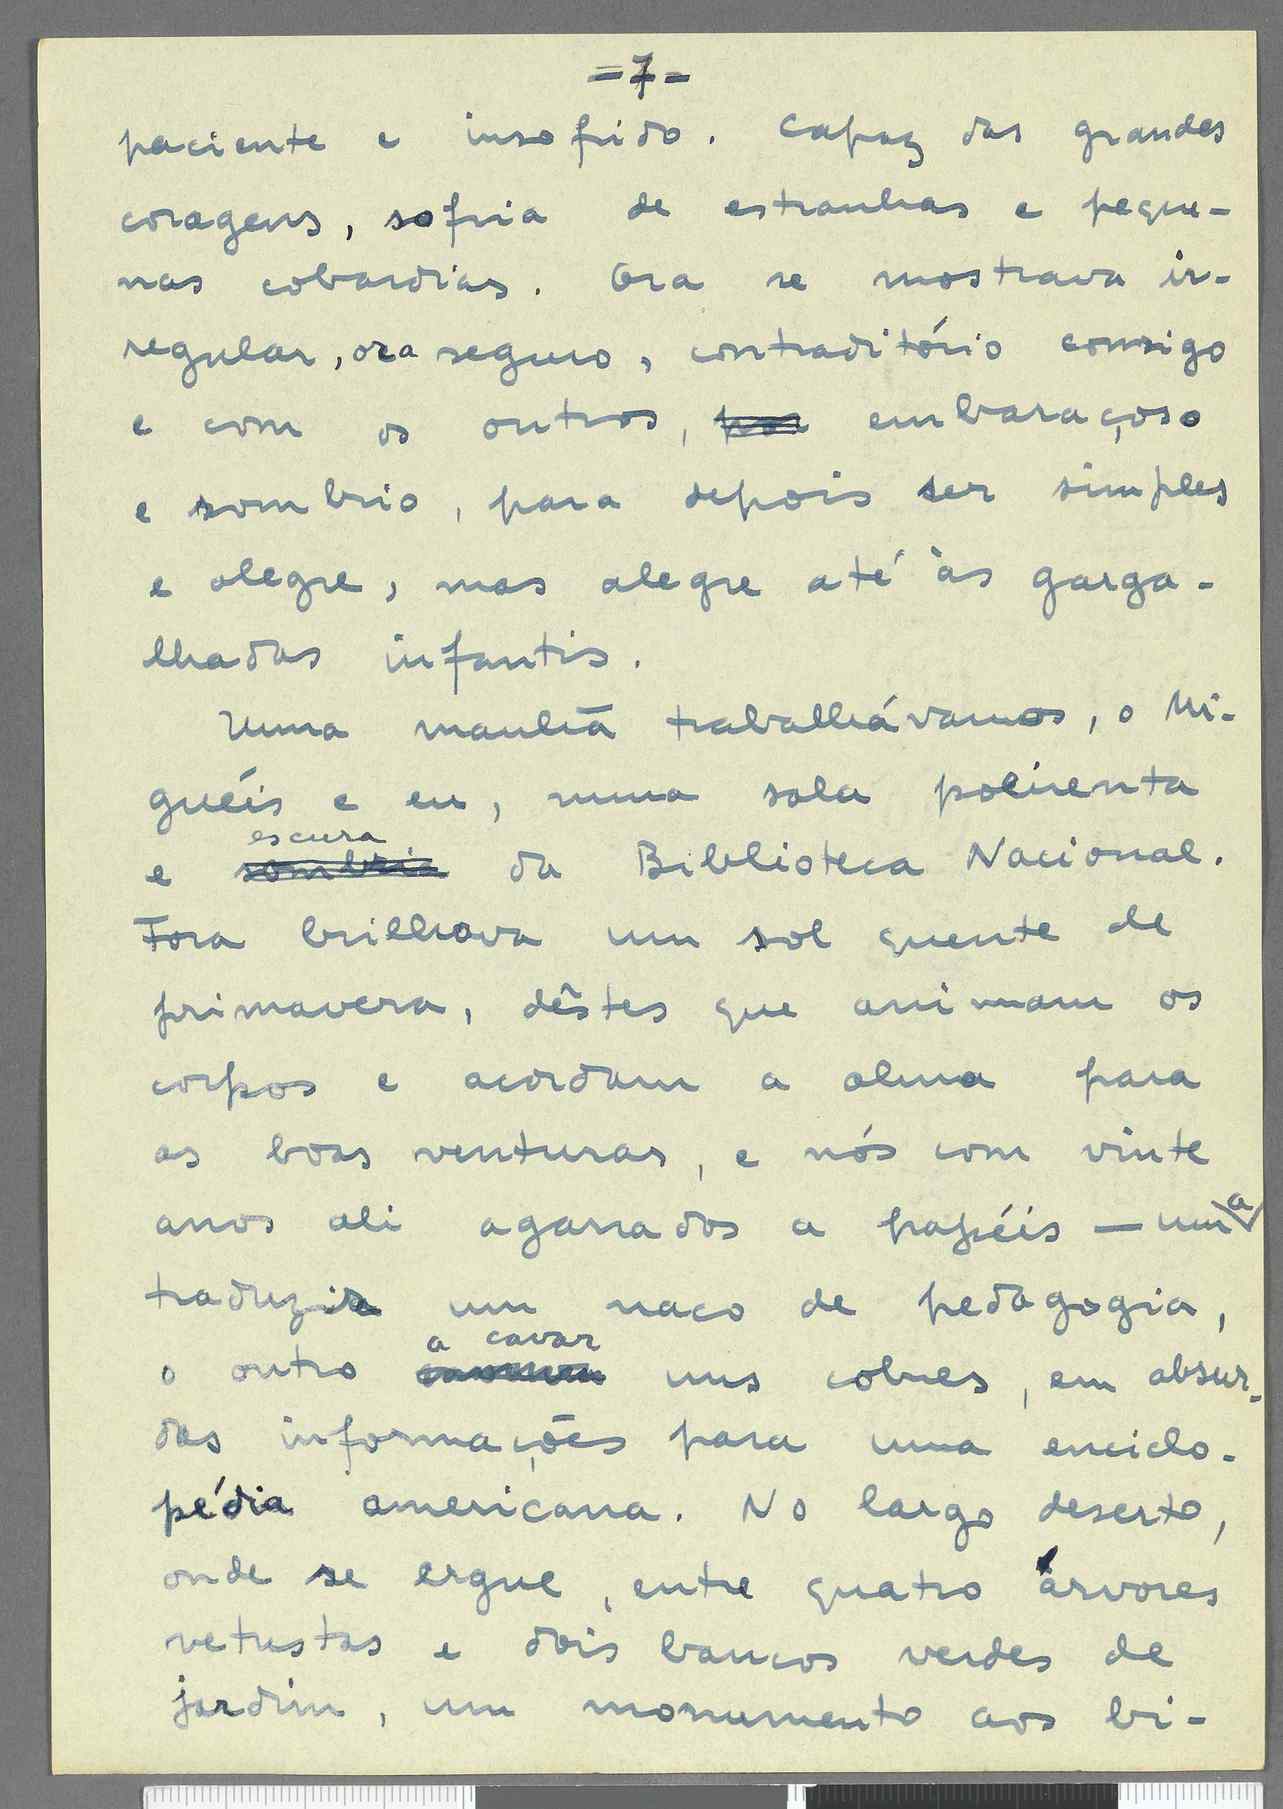 =7=
paciente e insofrido. Capaz das grandes
coragens, sofria de estranhas e peque-
nas cobardias. Ora se mostrava ir-
regular, ora seguro, contraditório consigo
e com os outros, por embaraçoso
e sombrio, para depois ser simples
e alegre, mas alegre até às garga-
lhadas infantis.
Uma manhã trabalhávamos, o Mi-
guéis e eu, numa sala poeirenta
escura
e sombria da Biblioteca Nacional.
Fora brilhava um sol quente de
primavera, dêstes que animam os
corpos e acordam a alma para
as boas venturas, e nós com vinte
anos ali agarrados a papéis — um a
traduzir um naco de pedagogia,
a cavar
o outro uns cobres, em absur-
das informações para uma enciclo-
pédia americana. No largo deserto,
onde se ergue, entre quatro árvores
vetustas e dois bancos verdes de
jardim, um monumento aos bi-